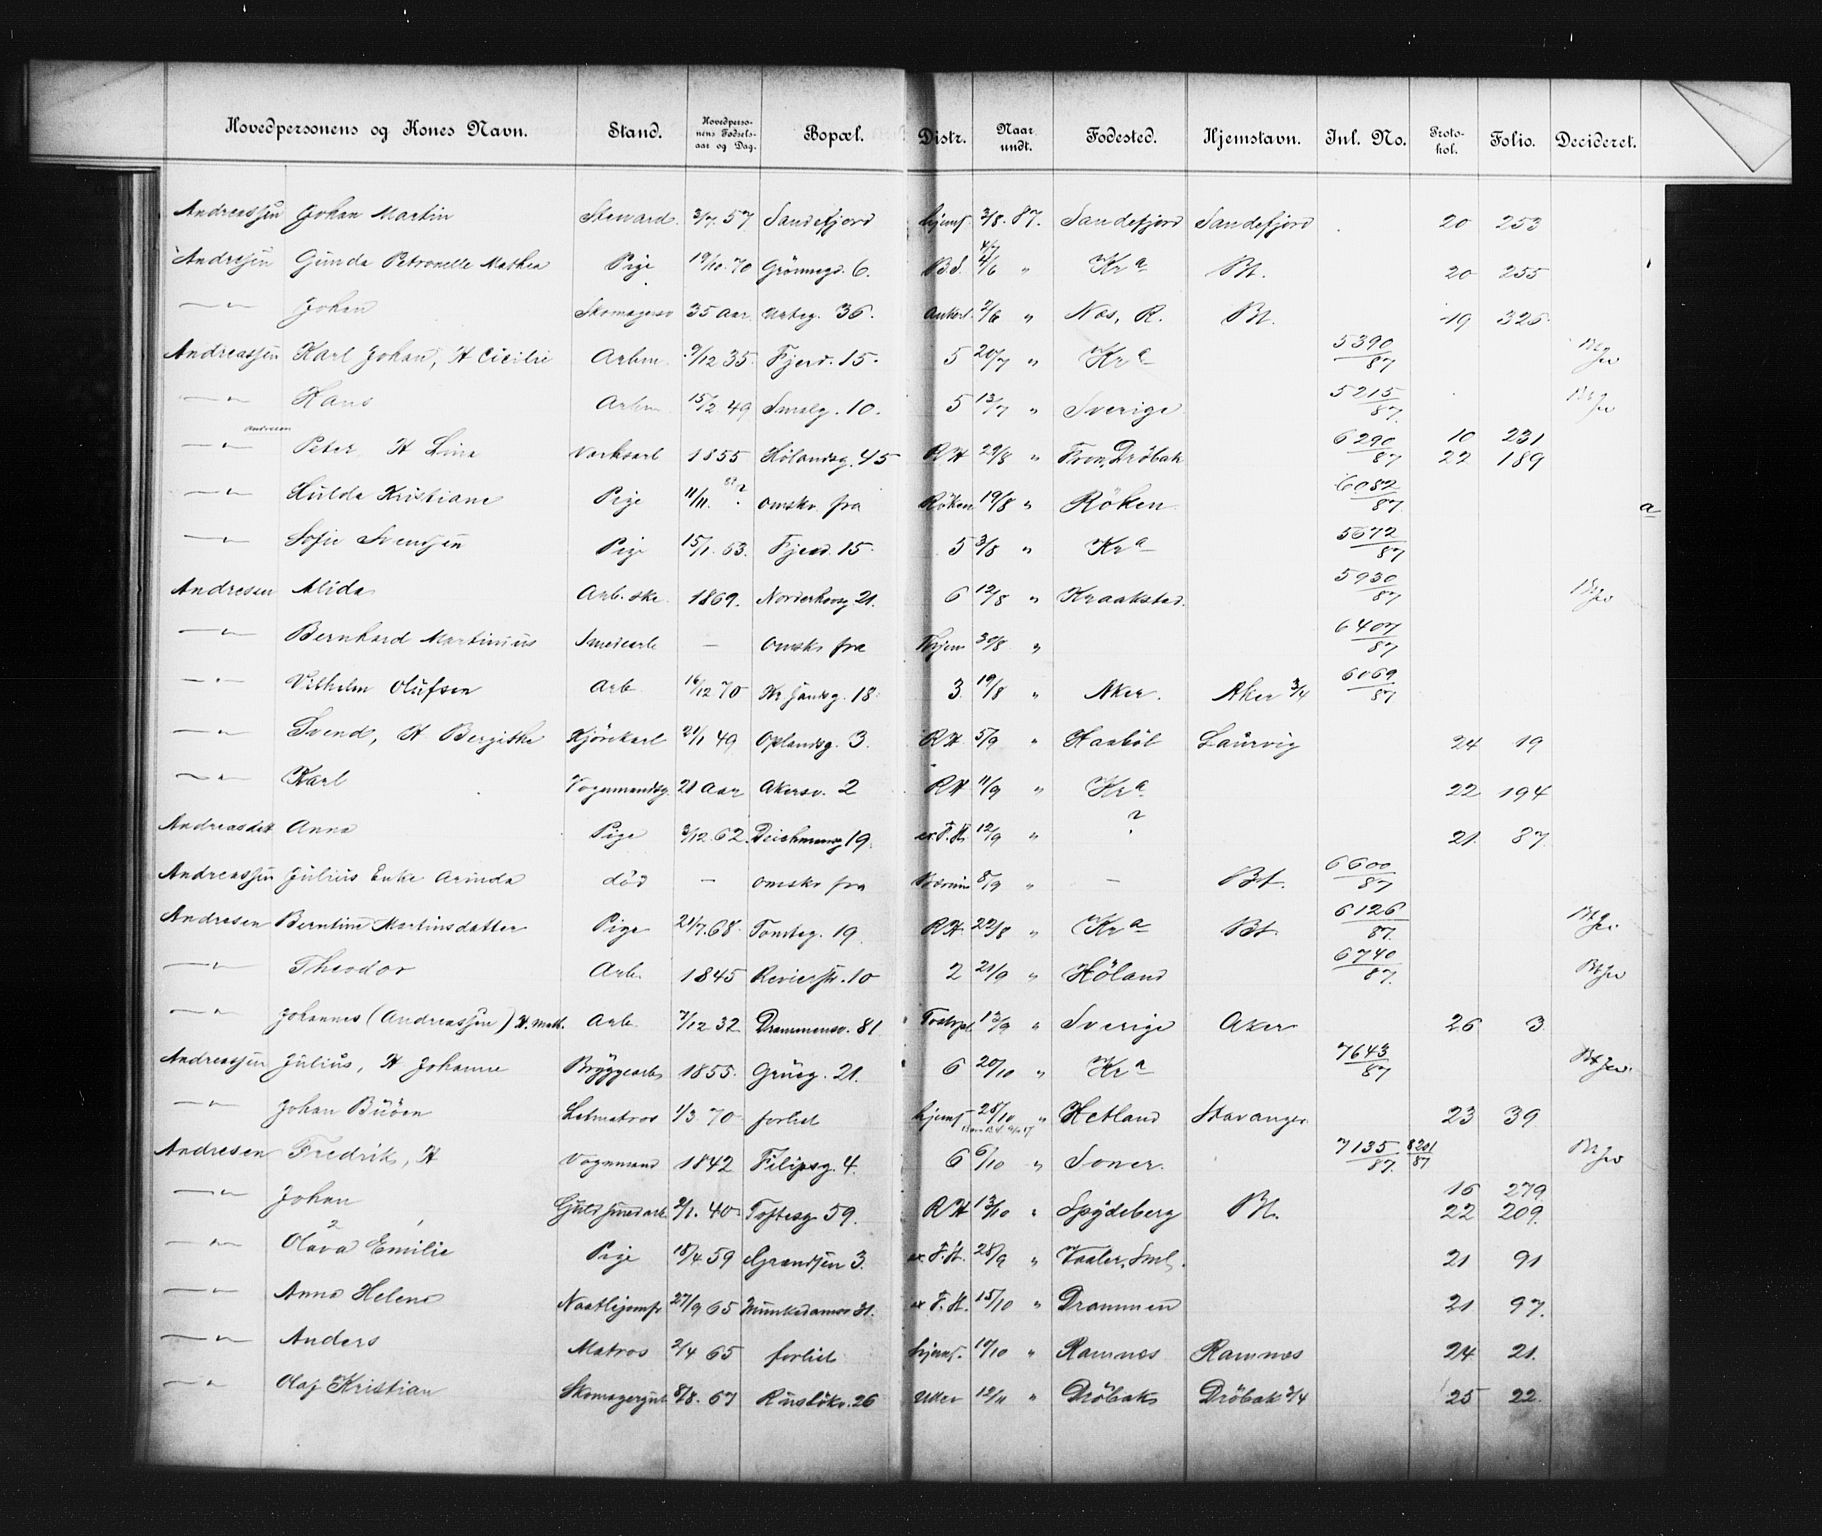 Hovedpersonens og Kones Navn. Stand. Hovedpersonens Fødselsaar og Dag. Bopæl. Distr. Naar undt. Fødested. Hjemstavn. Inl. No. Protokol. Folio. Decideret.
Andreassen Johan Martin Steward 3/7. 57 Sandefjord hjemf. 3/8. 87. Sandefjord Sandefjord 20 253
Andresen Gunda Petronelle Mathea Pige 19/10. 70 Grønnegd. 6. B.d. 4/6 " Kra Bt. 20 255
—"— Johan Skomagersv 35 Aar Urteg. 36. Ankerl 2/6 " Næs, R. Bt. 19 325
Andreassen Karl Johan, H Cicilie Arbm. 9/12 35. Fjerd. 15. 5 20/7 " Kra 5390/87
—"— Hans Arbm 15/2 49 Smalg. 10. 5 13/7 " Sverige 5215/87.
—"— Andresen Peter H Lina Værksarb 1855 Hølandsg. 45 RH 29/8 " Fron, Drøbak 6290/87 10 231
22 189
—"— Hulda Kristiane Pige 11/11. omskr. fra Røken 19/8 " Røken 6082/87. a
—"— Sofie Svendsen Pige 15/1. 63. Fjerd. 15. 5 3/8 " Kra 5672/87
Andresen Alida Arb. ske. 1869. Norderhovg 21. 6 12/8 " Kraakstad. 5930/87
—"— Bernhard Martinius Smedearb — omskr fra Thjem 30/8 " 6407/87
—"— Vilhelm Olufsen Arb 16/12 70 18 3. 19/8 " Aker. Aker 3/4 6069/87
—"— Svend, H Bergithe Kjørekarl 21/1 49 Oplandsg. 3. RH 5/9 " Haabøl Laurvig 24 19
—"— Karl Vognmandsg. 21 Aar Akersv. 2 RH 11/9 " Kra 22 194
Andreasdat Anna Pige 3/12 62. Deichmansg 19 ex. F.H. 12/9 " ? 21. 87.
Andreassen Julius Enke Arinda død — omskr fra 8/9 " — Bt. 6600/87
Andresen Berntine Martinsdatter Pige 21/7. 68. Tomteg. 19. RH. 22/8 " Kra Bt. 6126/87.
—"— Theodor Arb. 1845 Revierstr. 10 2 21/9 " Høland 6740/87.
—"— Johannes (Andreassen) H. Math. Arb. 7/12 32 Drammensv. 81 13/9 " Sverige Aker 26 3
Andreassen Julius, H Johanne Bryggearb 1855. Grüng. 21. 6 20/10 " Kra 7643/87
—"— Johan Buøen Letmatros 1/3 70 forlist hjemf. 25/10 " Hetland Stavanger 23 39
Andresen Fredrik, H Vognmand 1842 Filipsg. 4. 6 6/10 " Soner. 7135/87. 8201/87
—"— Johan Guldsmedarb. 2/1. 40 Toftesg 59. RH 13/10 " Spydeberg Bt. 16 279.
22 209.
—"— Olava Emilie Pige 18/4 59 Grændsen 3. ex F.H. 28/9 " Vaaler, Sml. 21 91
—"— Anna Helene 27/9 65 Munkedamsv 31. ex F.H. 15/10 " Drammen 21 97.
—"— Anders Matros 2/4 65 forlist hjemf. 10/10 " Ramnæs Ramnæs 24 21.
—"— Olaf Kristian Skomagergut 8/8. 67 Rusløkv. 26 Uller 12/11 " Drøbak Drøbak 3/4 25 22.